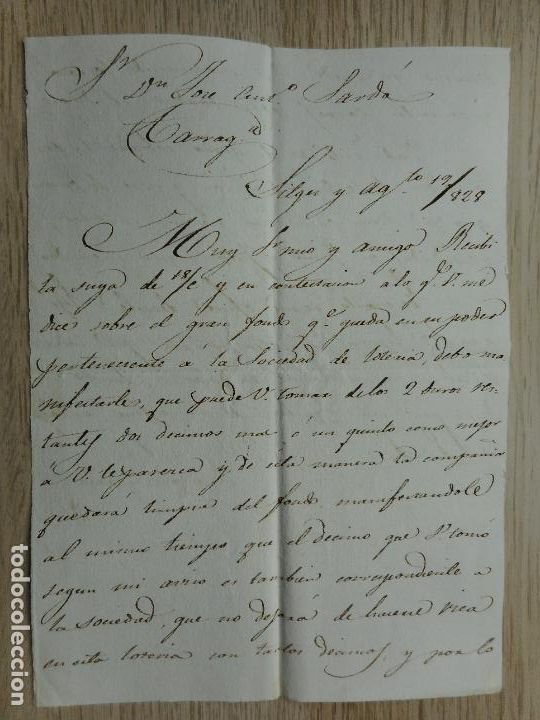 Sr
Dn Jose Anto Sardá
Tarragª
Sitges y Agto 19/828
Muy Sr mio y amigo. Recibi
la suya de 18/c y en contestacion á lo qe V. me
dice sobre el gran fondo qe queda en su poder
perteneciente á la Sociedad de loteria, debo ma
nifestarle, que puede V. tomar de los 2 duros res-
tantes dos decimos mas ó un quinto como mejor
á V. le paresca y de esta manera la compañia
quedará limpia del fondo manifestandole
al mismo tiempo que el decimo que V. tomó
segun mi aviso es tambien correspondiente a
la sociedad, que no dejará de hacerse rica
en esta loteria con tantos decimos, y por lo
todocoleccion